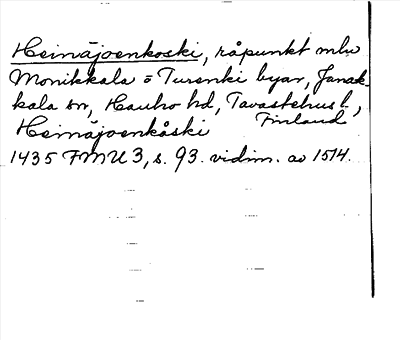 Heinäjoenkoski, råpunkt mlw
Monikkala o Turenki byar, Janak-
kala sn, Hauho hd, Tavastehus l.,
Finland
Heinäjoenkåski
1435 FMU 3, s. 93. vidim. av 1514.